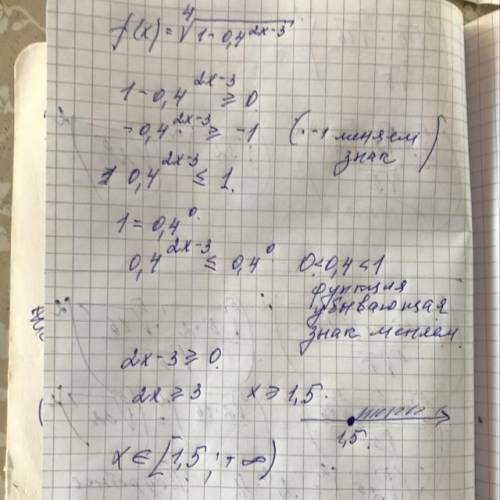 f(x) = ⁴√(1-0,4^(2x-3))
1-0,4^(2x-3) ≥ 0
-0,4^(2x-3) ≥ -1 (· -1 меняем знак)
0,4^(2x-3) ≤ 1.
1 = 0,4^0.
0,4^(2x-3) ≤ 0,4^0 0<0,4<1
функция
убывающая
знак меняем
2x-3 ≥ 0
2x ≥ 3 x ≥ 1,5.
1,5.
x ∈ [1,5 ; +∞)